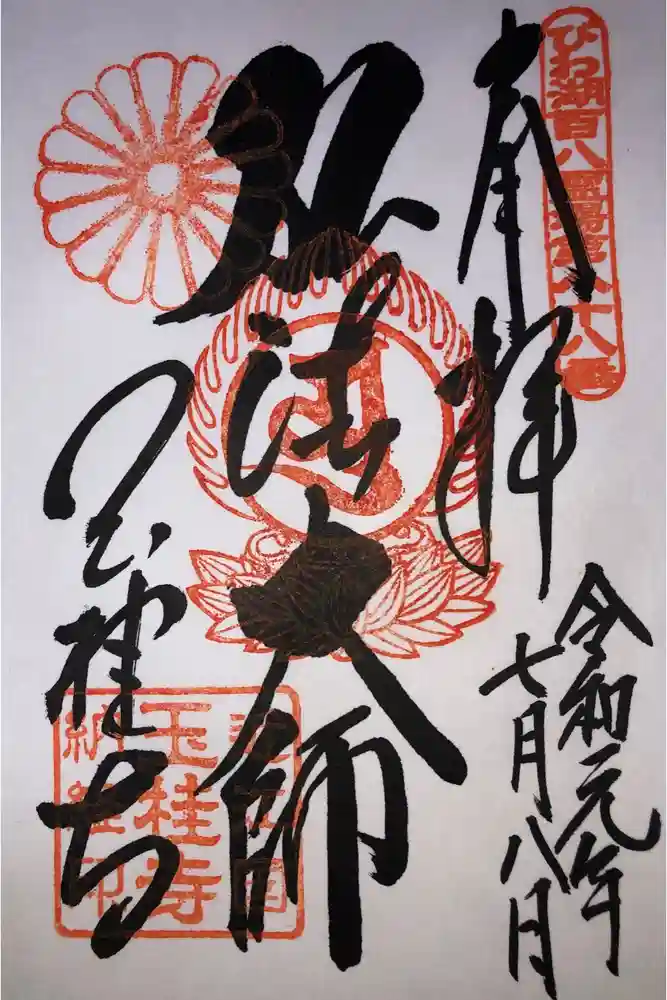 びわ湖百八霊場第八十八番
奉拝
令和元年
七月八日
弘法大師
玉桂寺
玉桂寺
納経印